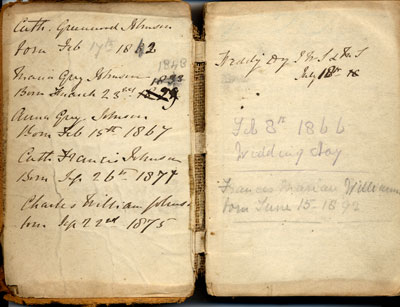 Cath. Greenwood Johnson
born Feb 17th 1842
Maria Grey Johnson 1848
Born March 23rd
Anna Grey Johnson
Born Feb 15th 1867
Cath. Francis Johnson
Born Sep 26th 1871
Charles William Johnson
born Sep 22nd 1875
July 18th
Feb 8th 1866
Wedding day
Frances Marian William
born June 15 1892